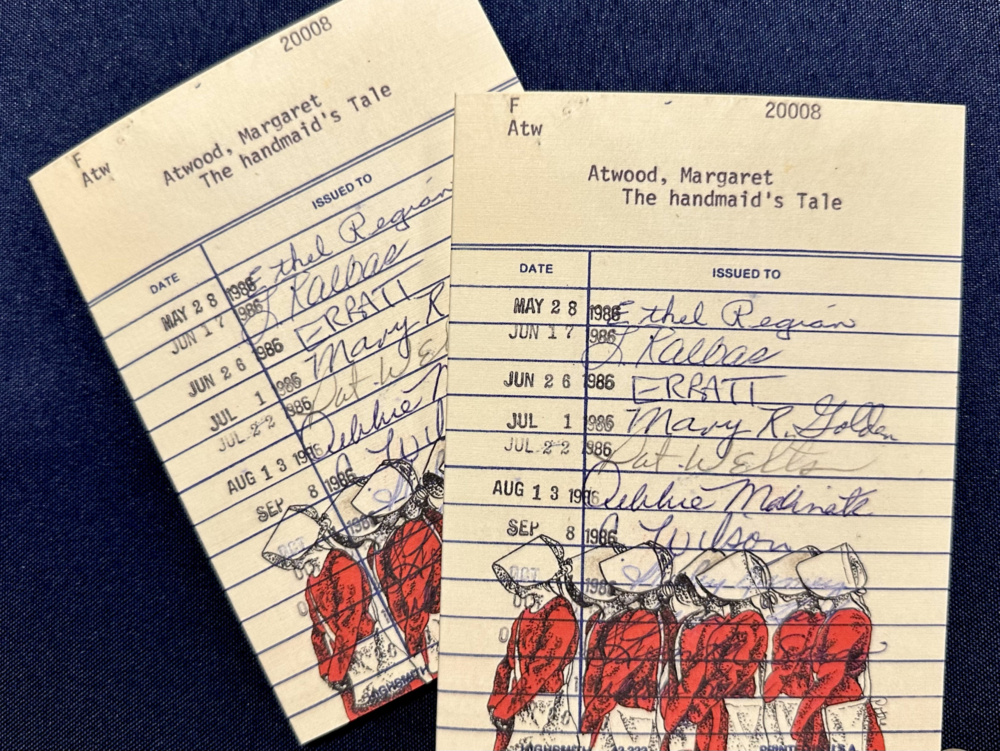 20008
F
Atw
Atwood, Margaret
The handmaid's Tale
ISSUED TO
DATE
MAY 28 1986 Ethel Region
JUN 17 1986 J. Kalbac
JUN 26 1986 ERRATI
JUL 1 1986 Mary R
JUL 22 1986 Pat We
AUG 13 1986 Debbie M
SEP 8 1986 Wil
OCT
198
HIGHSMITH
F 20008
Atw
Atwood, Margaret
The handmaid's Tale
DATE ISSUED TO
MAY 28 1986 Ethel Region
JUN 17 1986 J. Kalbac
JUN 26 1986 ERRATI
JUL 1 1986 Mary R. Golden
JUL 22 1986 Pat Wells
AUG 13 1986 Debbie
SEP 8 1986 Wilson
OCT 1986
HIGHSMITH PRINTED U.S.A.